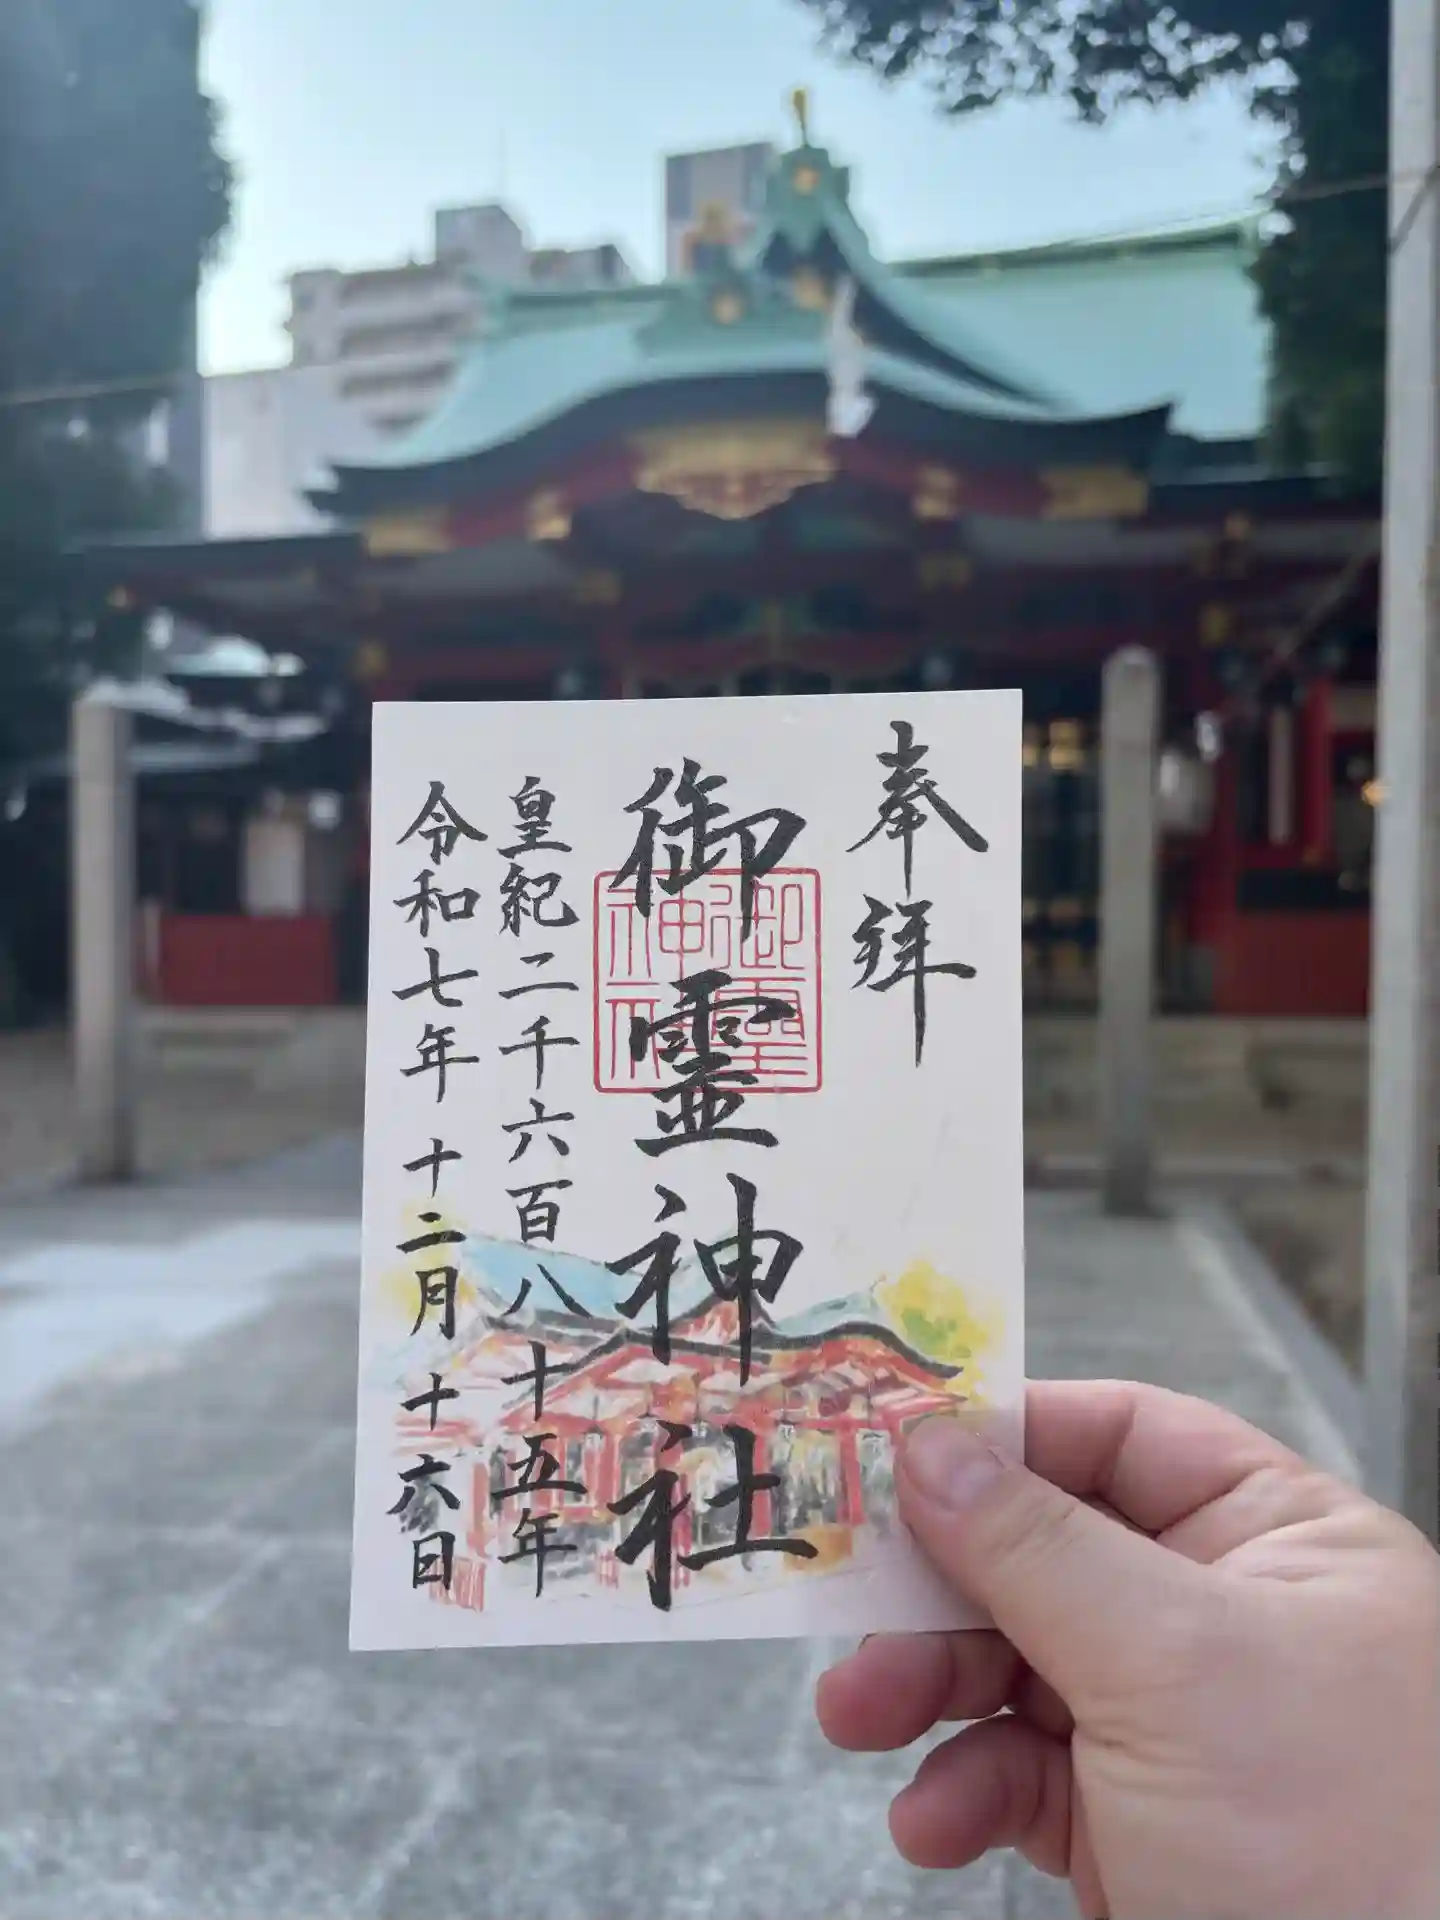 奉拝
御霊神社
御霊神社
皇紀二千六百八十五年
令和七年十二月十六日